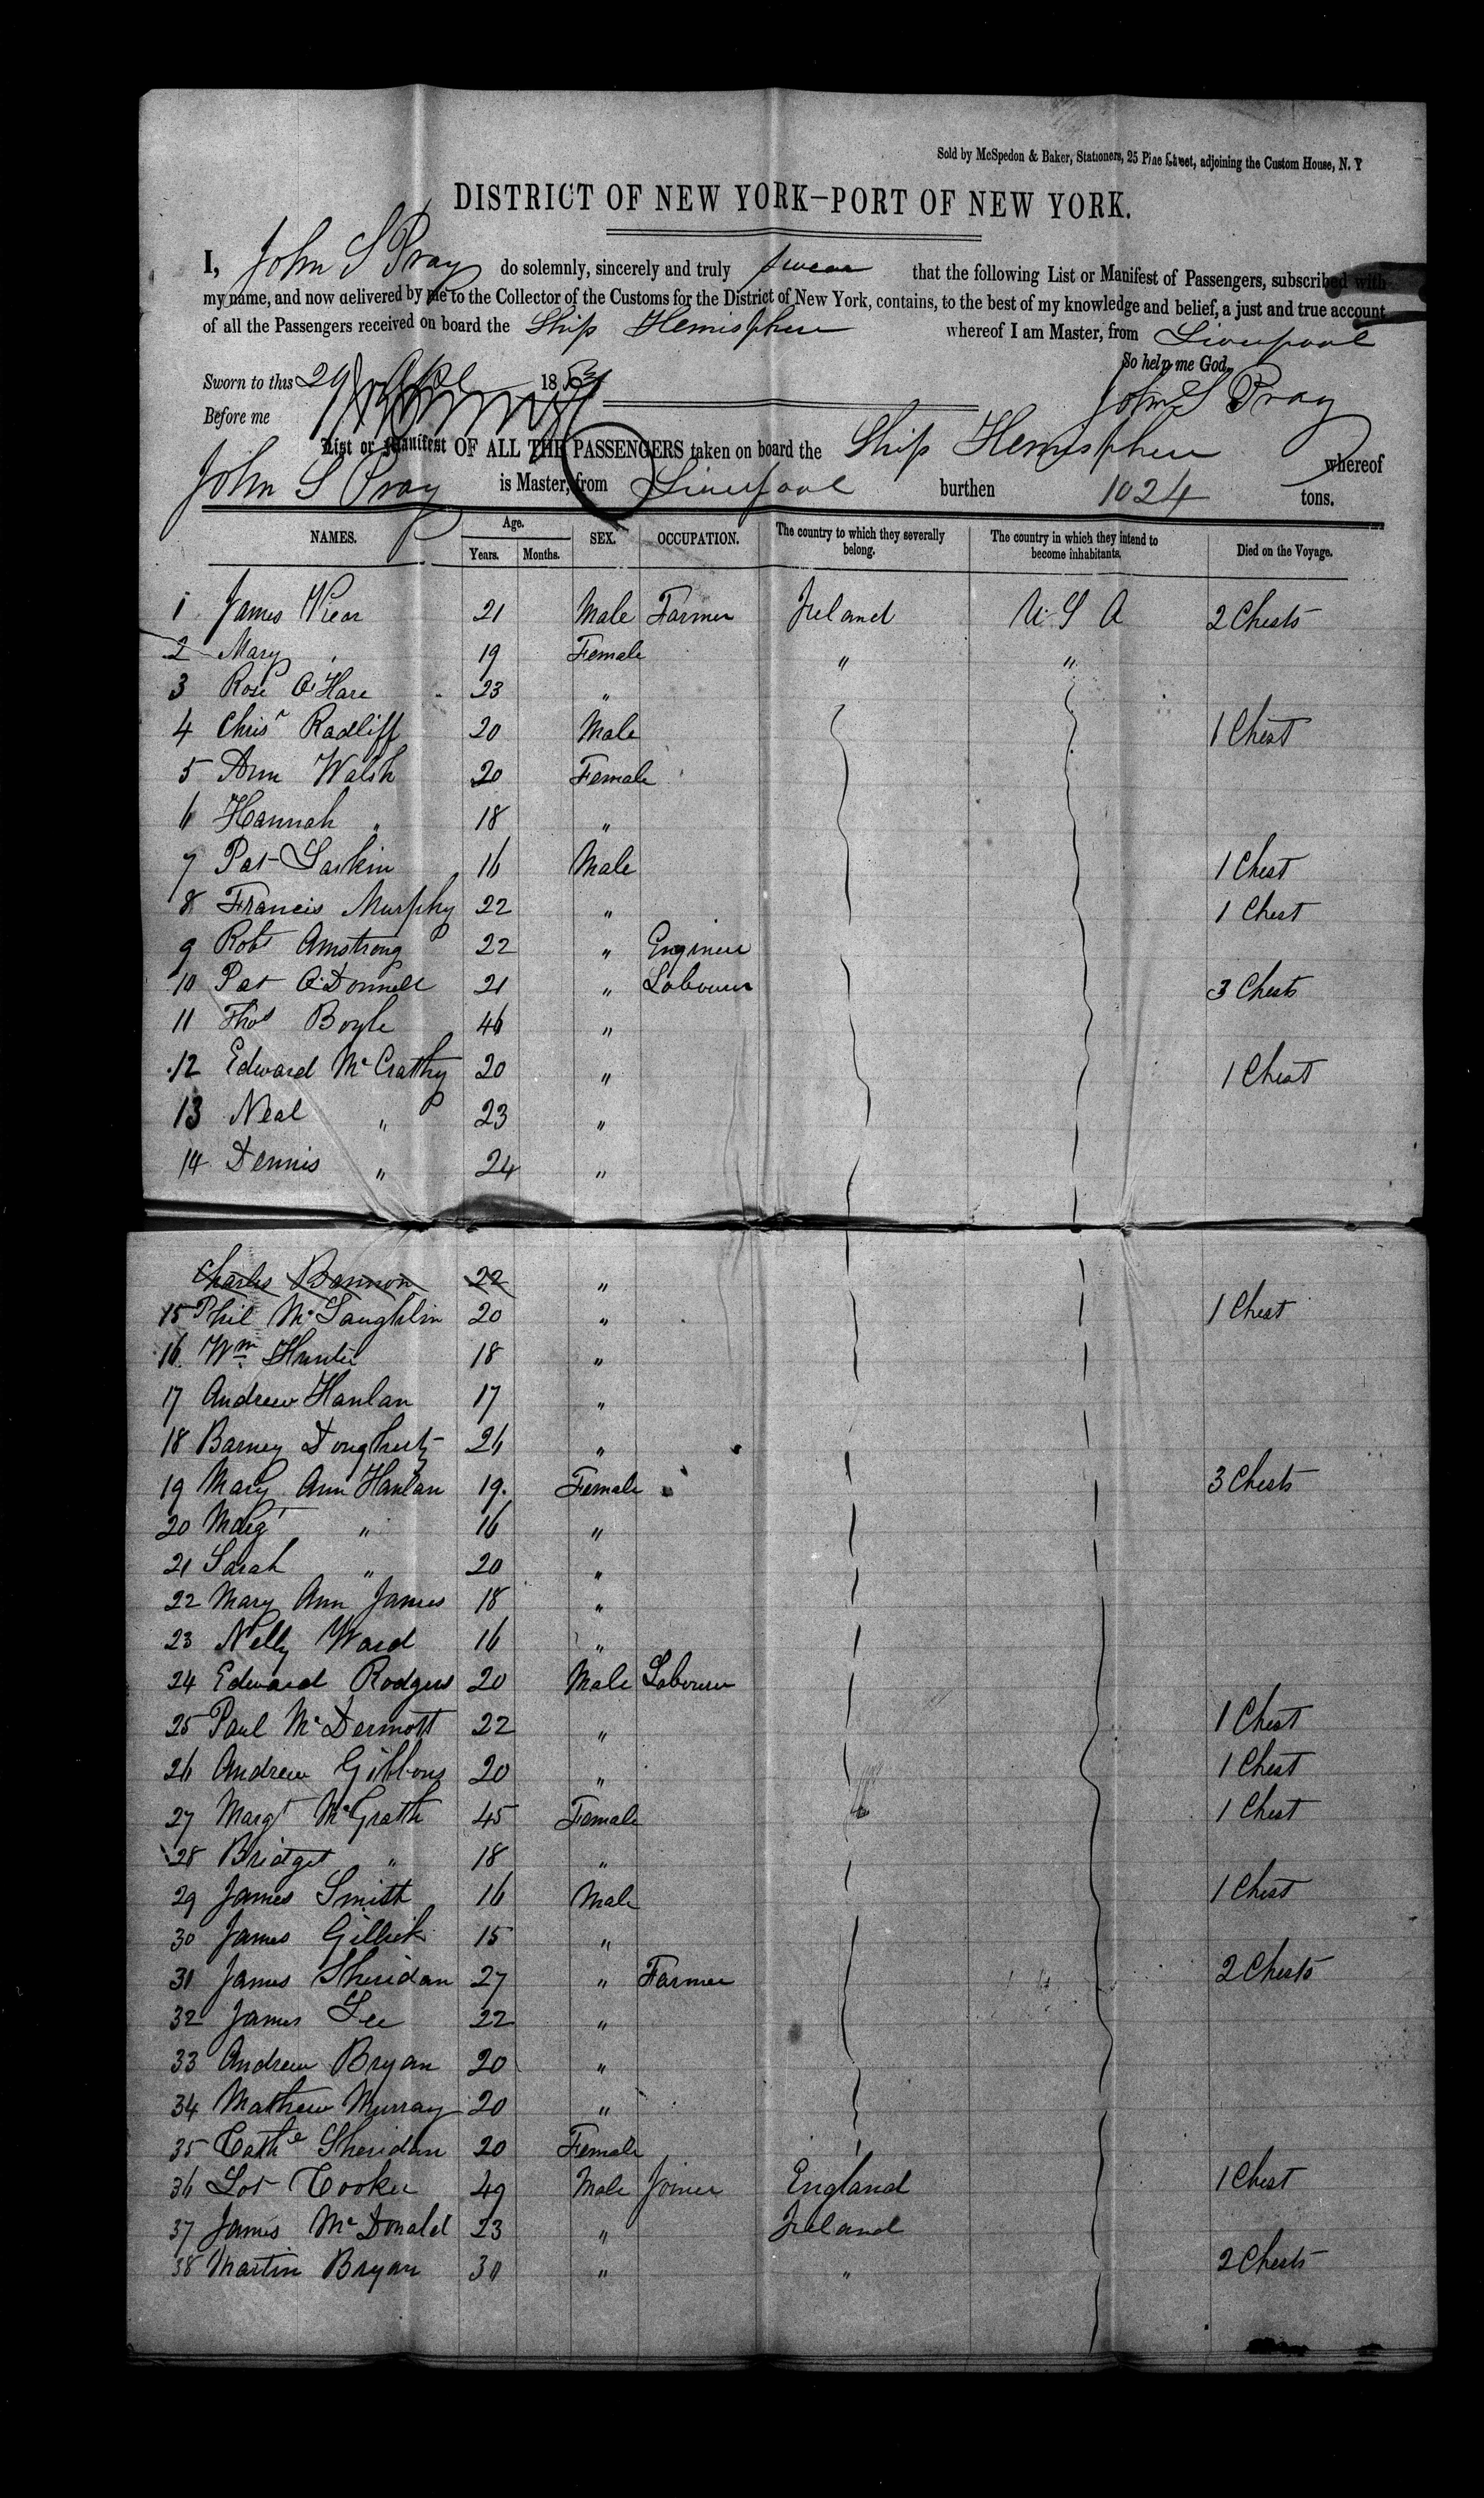 Sold by McSpedon & Baker, Stationers, 25 Pine Street, adjoining the Custom House, N. Y
DISTRICT OF NEW YORK—PORT OF NEW YORK.
I, John S Pray do solemnly, sincerely and truly swear that the following List or Manifest of Passengers, subscribed with
my name, and now delivered by me to the Collector of the Customs for the District of New York, contains, to the best of my knowledge and belief, a just and true account
of all the Passengers received on board the Ship Hemisphere whereof I am Master, from Liverpool
So help me God.
Sworn to this 29 185
John S Pray
Before me
List or Manifest OF ALL THE PASSENGERS taken on board the Ship Hemisphere whereof
John S Pray is Master, from Liverpool burthen 1024 tons.
NAMES. Age. Years. Months. SEX. OCCUPATION. The country to which they severally belong. The country in which they intend to become inhabitants. Died on the Voyage.
1 James 21 Male Farmer Ireland U S A 2 Chests
2 Mary " 19 Female " "
3 Rose O'Hare 23 "
4 Chrisr Radliff 20 Male 1 Chest
5 Ann Walsh 20 Female
6 Hannah " 18 "
7 Pat Larkin 16 Male 1 Chest
8 Francis Murphy 22 " 1 Chest
9 Robt Amstrong 22 " Engineer
10 Pat O'Donnell 21 " Labourer 3 Chests
11 Thos Boyle 46 "
12 Edward McCrathy 20 " 1 Chest
13 Neal " 23 "
14 Dennis " 24 "
Charles Bannon 22 "
15 Phil McLaughlin 20 " 1 Chest
16 Wm Hunter 18 "
17 Andrew Hanlan 17 "
18 Barney Dougherty 26 "
19 Mary Ann Hanlan 19 Female 3 Chests
20 Margt " 16 "
21 Sarah " 20 "
22 Mary Ann James 18 "
23 Nelly Ward 16 "
24 Edward Rodgers 20 Male Labourer
25 Paul McDermott 22 " 1 Chest
26 Andrew Gibbons 20 " 1 Chest
27 Margt McGrath 45 Female 1 Chest
28 Bridget " 18 "
29 James Smith 16 Male 1 Chest
30 James Gillick 15 "
31 James Sheridan 27 " Farmer 2 Chests
32 James Lee 22 "
33 Andrew Bryan 20 "
34 Mathew Murray 20 "
35 Cathe Sheridan 20 Female
36 Lot Cooker 49 Male Joiner England 1 Chest
37 James McDonald 23 " Ireland
38 Martin Bryan 30 " " 2 Chests